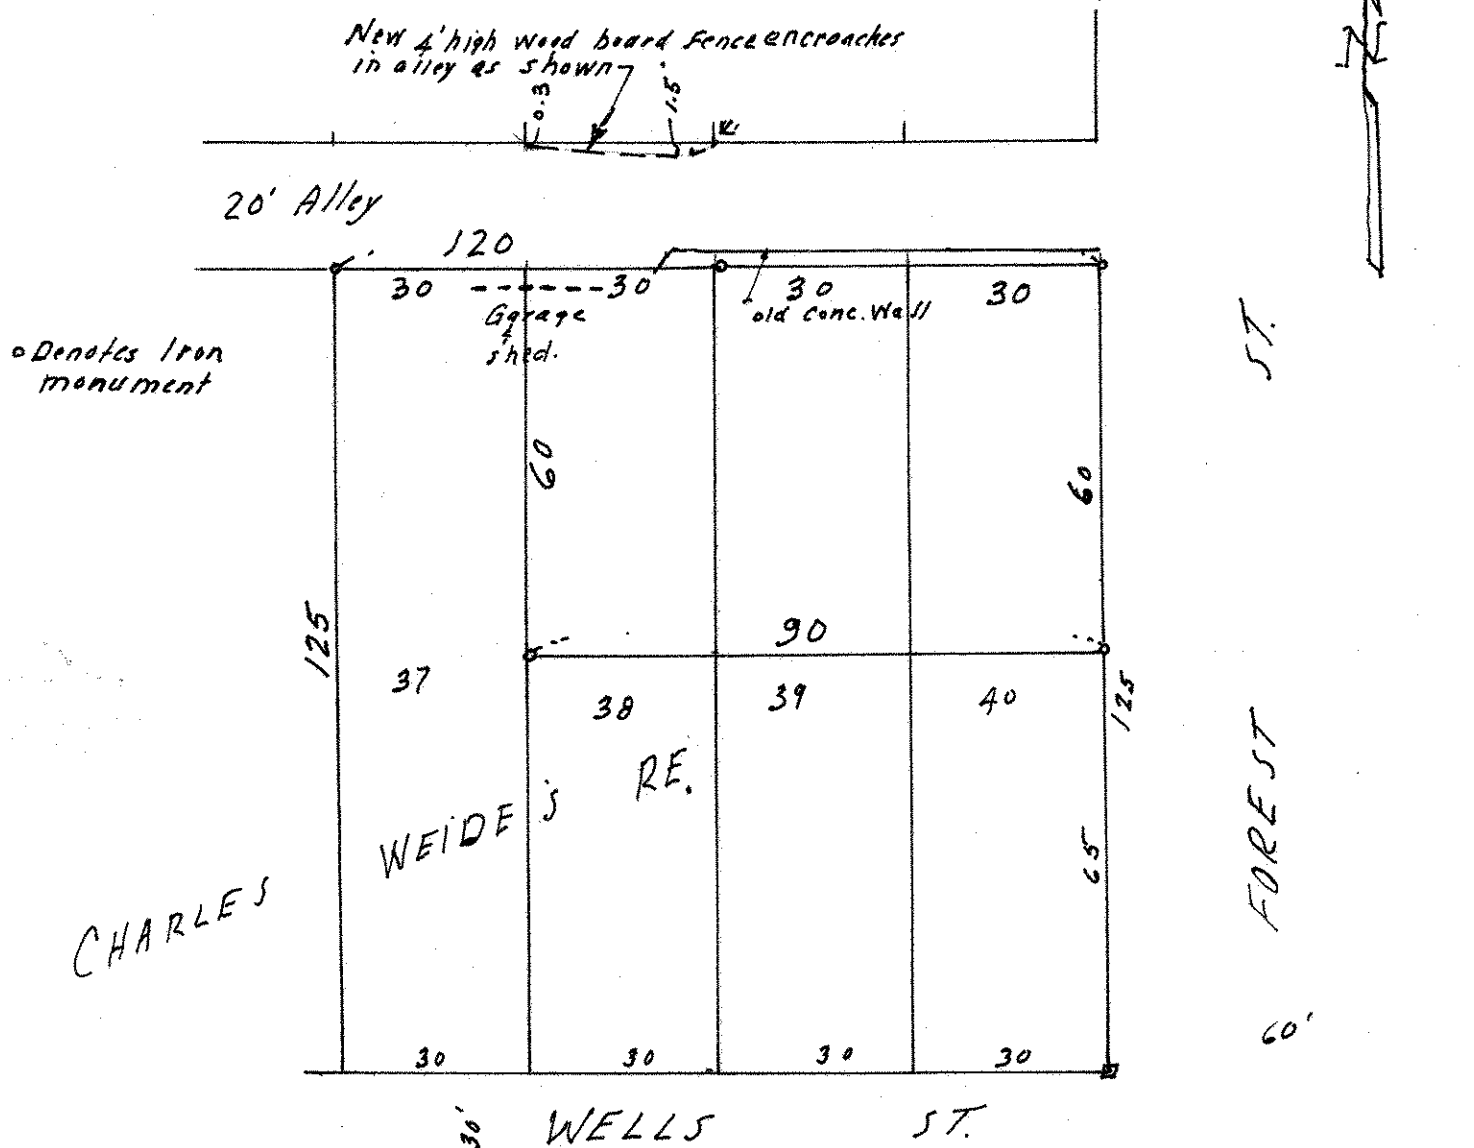 New 4' high wood board fence encroaches
in alley as shown
0.3
1.5
20' Alley
120
30
30
30
30
Garage
&
shed.
old conc. Wall
o Denotes Iron
monument
ST.
60
60
125
90
37
38
39
40
125
CHARLES WEIDE'S RE.
65
FOREST
60'
30
30
30
30
30'
WELLS ST.